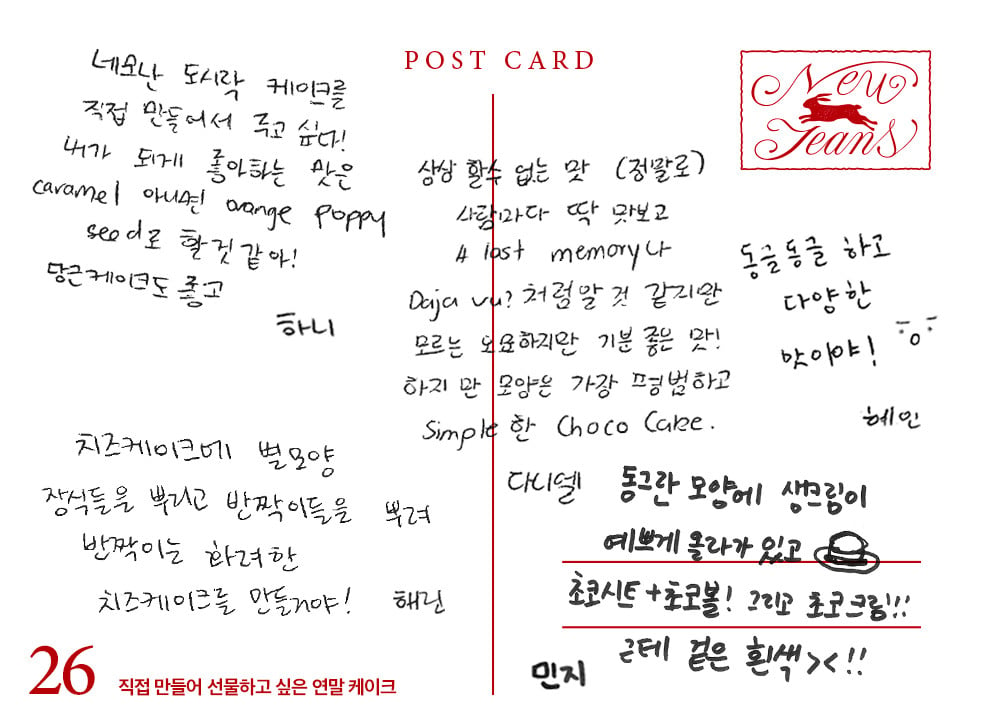 POST CARD
New
Jeans
네모난 도시락 케이크를
직접 만들어서 주고 싶다!
내가 되게 좋아하는 맛은
caramel 아니면 orange poppy
seed로 할 것 같아!
당근케이크도 좋고
하니
상상 할수 없는 맛 (정말로)
사람마다 딱 맛보고
A lost memory나
Daja vu? 처럼알 것 같지만
모르는 오묘하지만 기분 좋은 맛!
하지만 모양은 가장 평범하고
Simple 한 Choco Cake.
다니엘
동글동글 하고
다양한
맛이야!
혜인
치즈케이크에 별모양
장식들을 뿌리고 반짝이들을 뿌려
반짝이는 화려한
치즈케이크를 만들거야! 해린
동그란 모양에 생크림이
예쁘게 올라가 있고
초코시트+초코볼! 그리고 초코크림!!!
근데 겉은 흰색><!!
민지
26 직접 만들어 선물하고 싶은 연말 케이크